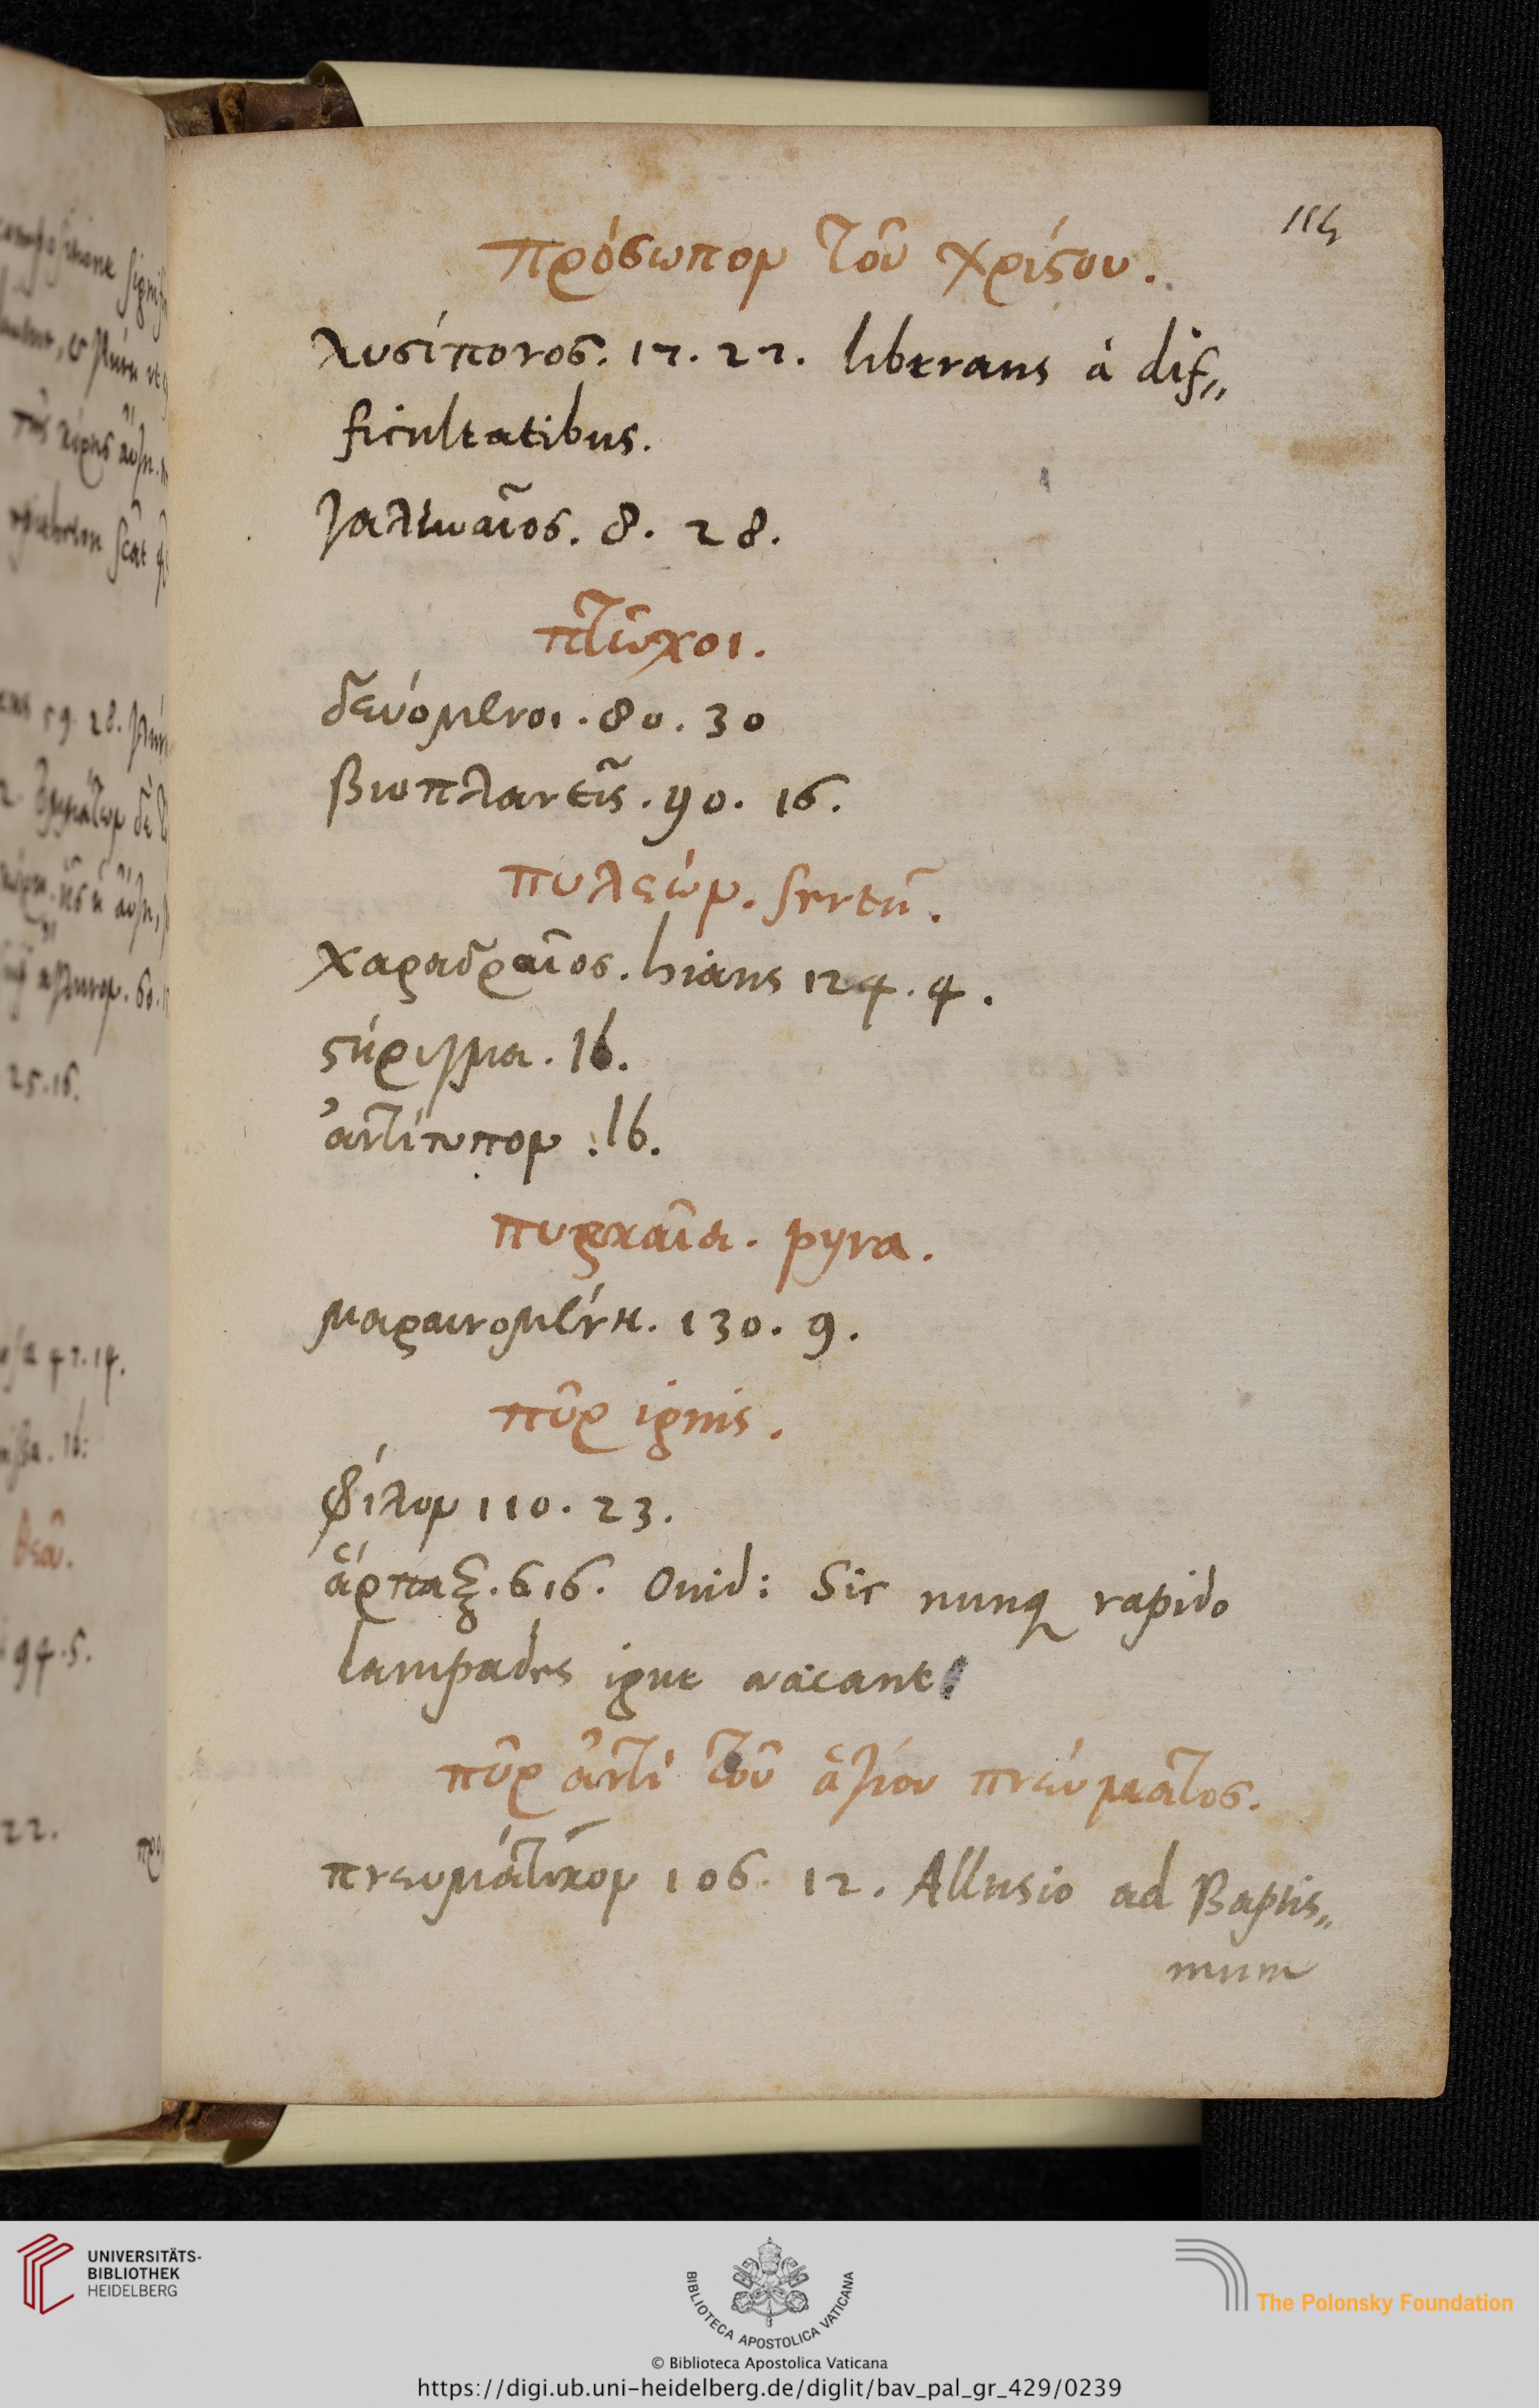 114
πρόσωπον τοῦ χρίστου.
λυσίπονος. 17. 22. liberans à dif„
ficultatibus.
γαληναῖος. 8. 28.
πτῶχοι.
δευόμενοι. 80. 30
βιοπλανεῖς. 90. 16.
πυλεών. sertũ.
χαραδραῖος. hians 124. 4.
στήριγμα. Ib.
ἀντίτυπον. Ib.
πυρκαῖα. pyra.
μαραινομένη. 130. 9.
πῦρ ignis.
φίλον 110. 23.
ἅρπαξ. 616. Ouid: Sic nunq rapido
lampades igne vacant
πῦρ ἀντὶ τοῦ ἁγίου πνεύματος.
πνευμάτικον 106. 12. Allusio ad Baptis„
mum
25. 16.
94. 5.
22.
UNIVERSITÄTS-
BIBLIOTHEK
HEIDELBERG
BIBLIOTECA APOSTOLICA VATICANA
The Polonsky Foundation
© Biblioteca Apostolica Vaticana
https://digi.ub.uni-heidelberg.de/diglit/bav_pal_gr_429/0239